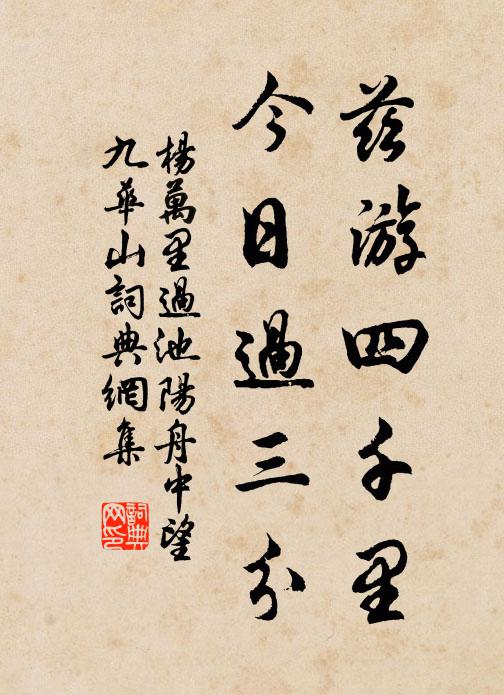 茲游四千里
今日過三分
楊萬里過池陽舟中望
九華山詞典網集
詞典网印